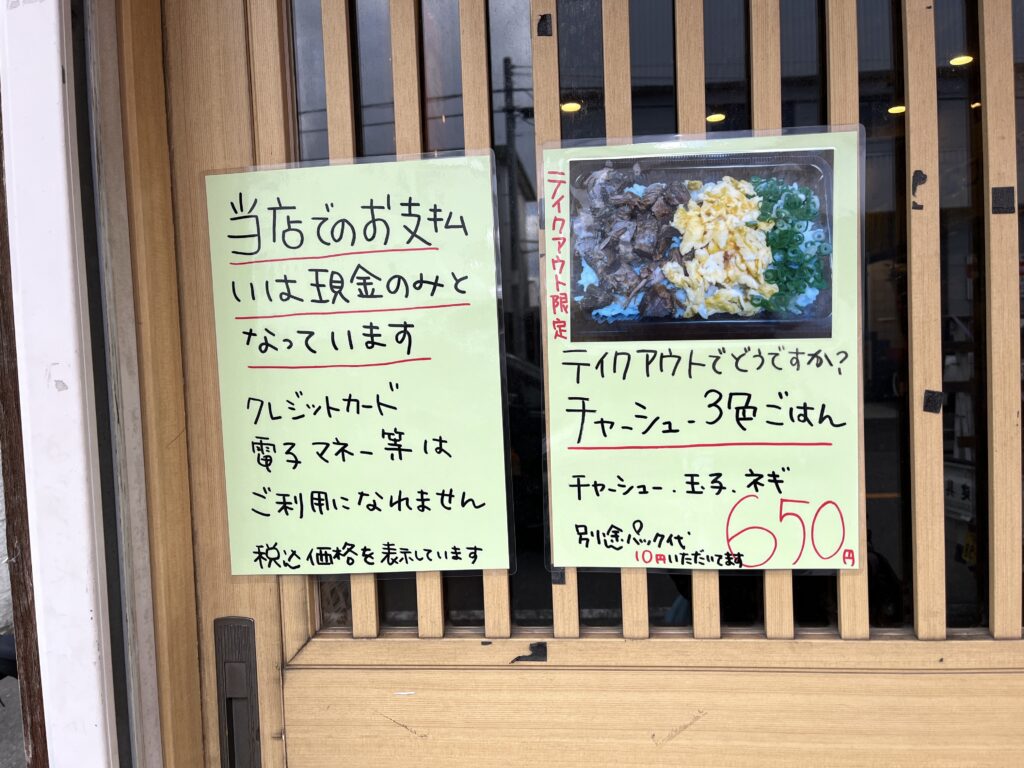 当店でのお支払
いは現金のみと
なっています
クレジットカード
電子マネー等は
ご利用になれません
税込価格を表示しています
テイクアウト限定
テイクアウトでどうですか?
チャーシュー3色ごはん
チャーシュー.玉子.ネギ
別途パック代
10円いただいてます
650円